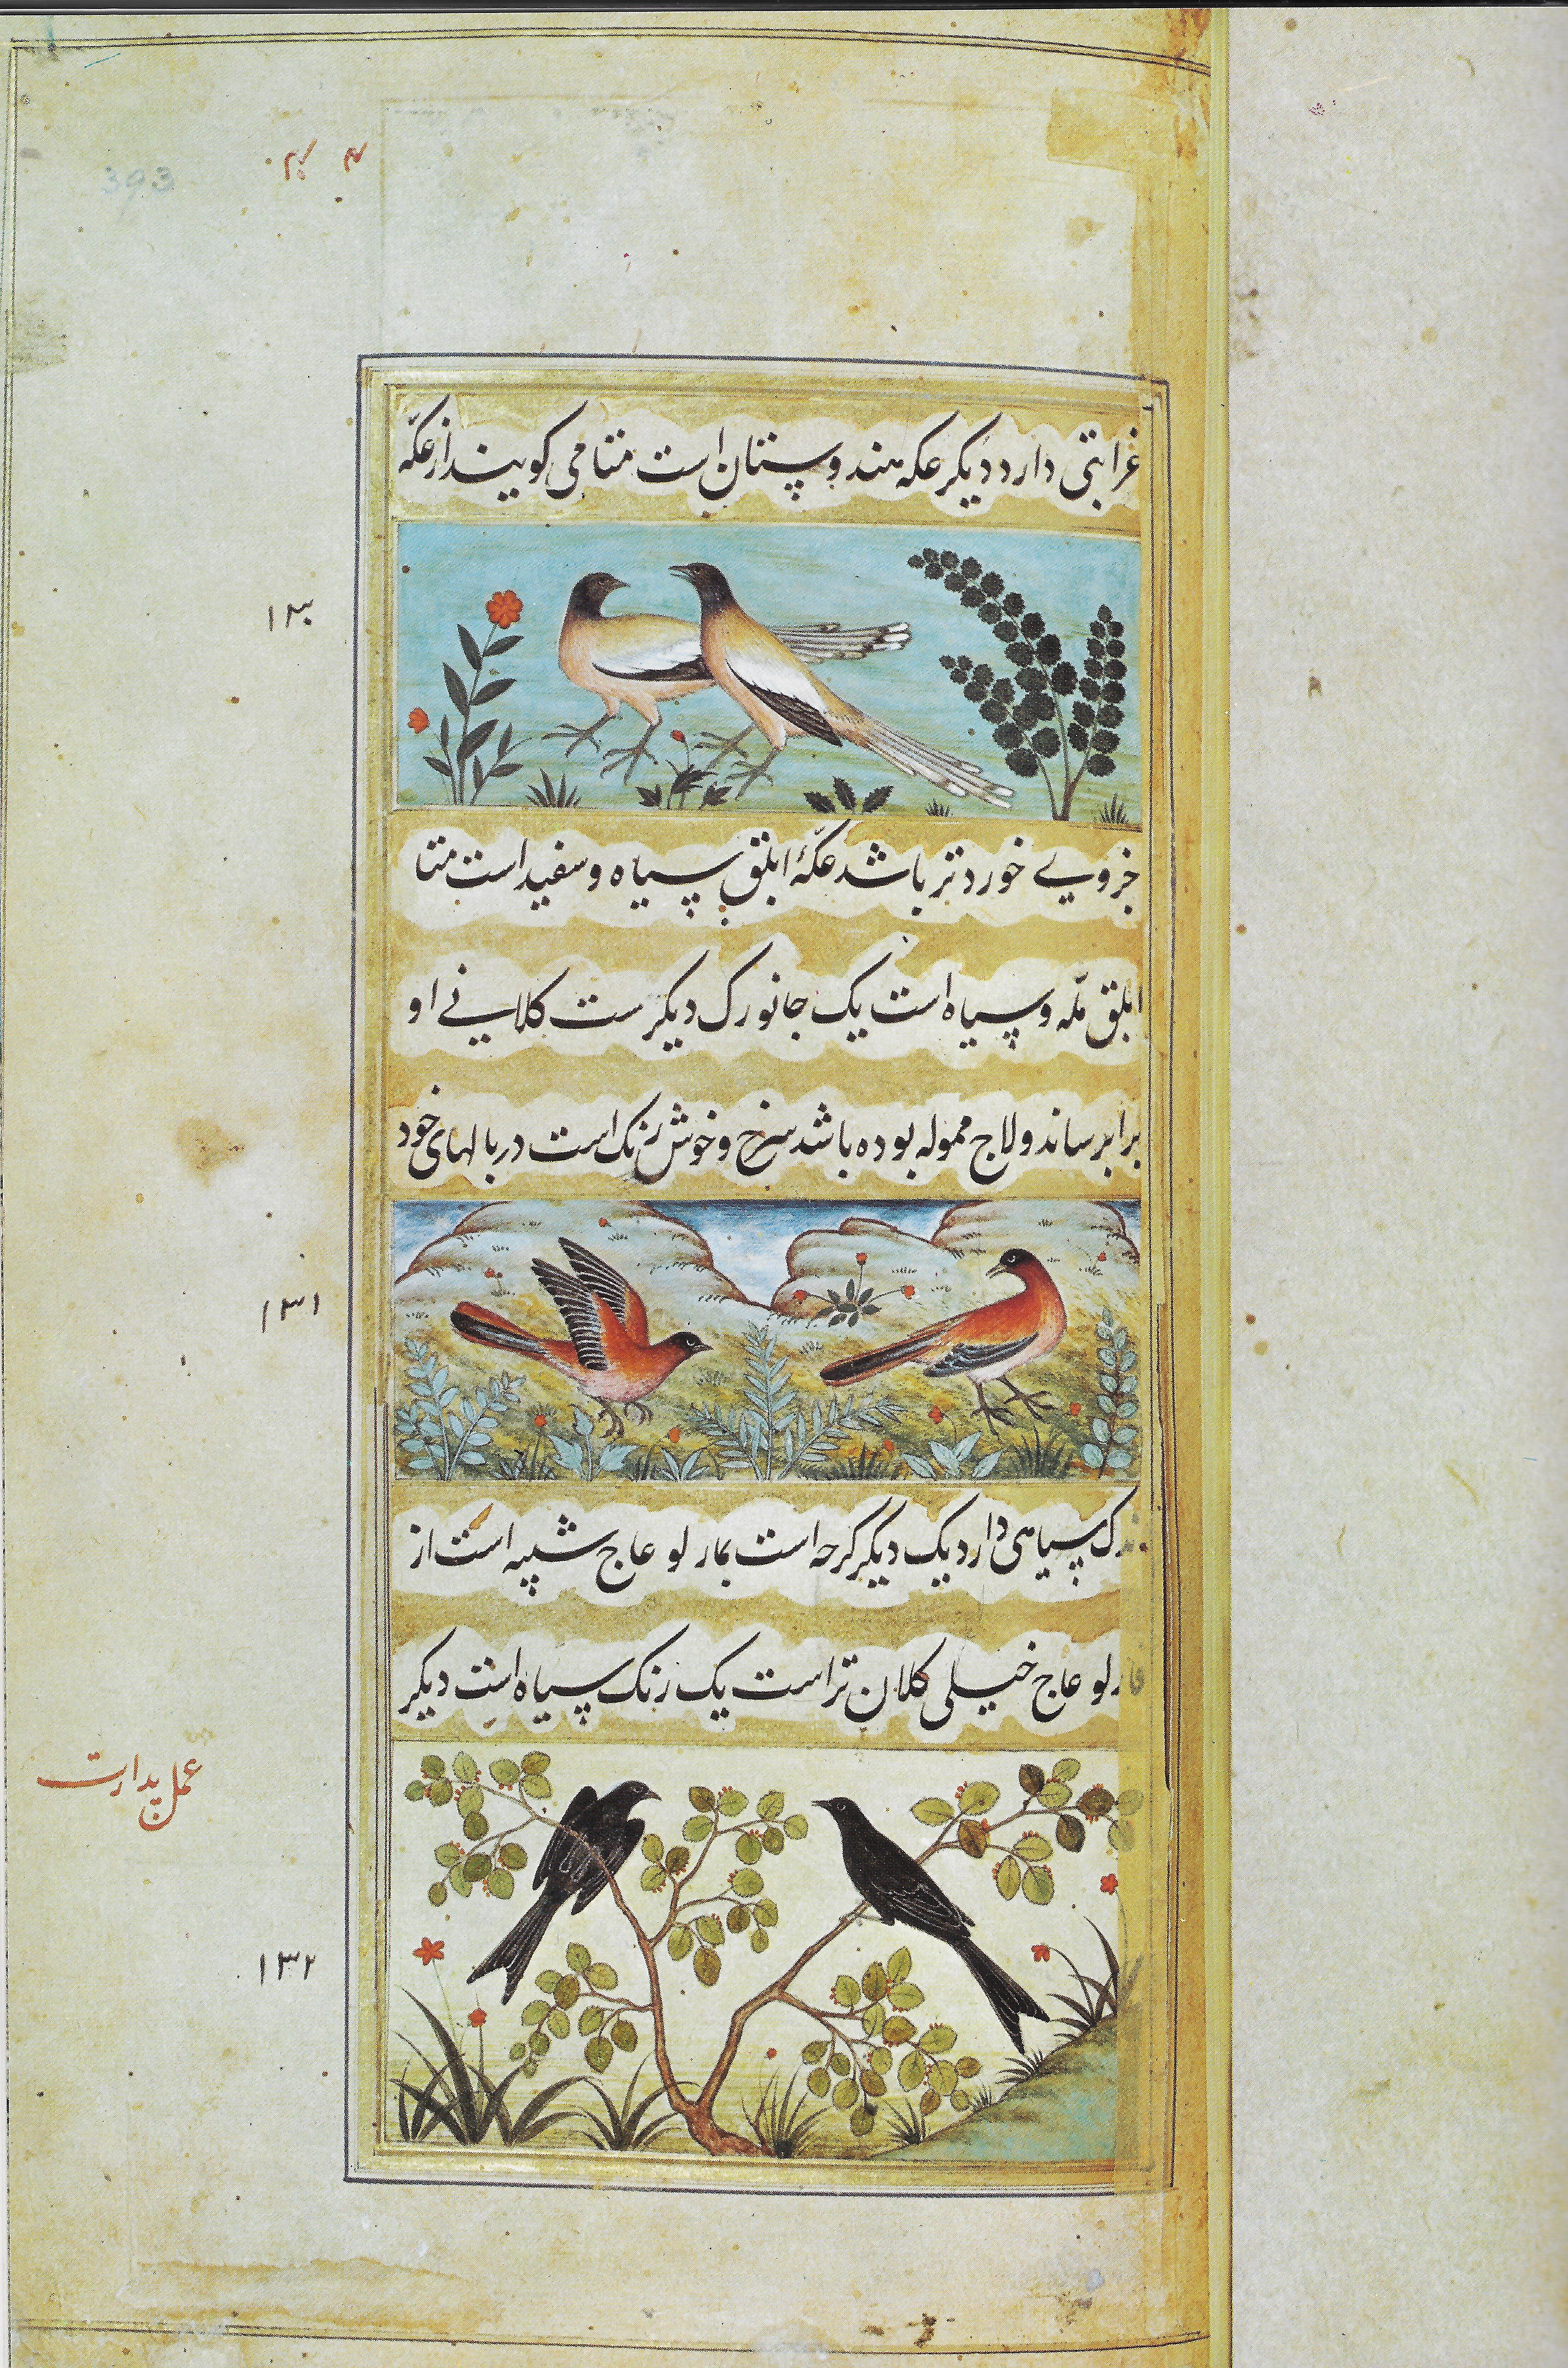 393
غرابتی دارد دیکر عکه هندوستان است متا می کویند از عکّه
۱۳۰
جزویے خورد تر باشد عکّهٔ ابلق سیاه و سفید است متا
ابلق ملّه و سیاه است یک جانورک دیکر ست کلانے او
برابر ساندولاج ممولہ بوده باشد سرخ و خوش رنک است در بالهای خود
۱۳۱
ندک سیاهی دارد یک دیکر کرچه است بمارلو عاج شبیه است از
قارلو عاج خیلی کلان تر است یک رنک سیاه است دیکر
عمل پدارت
۱۳۲